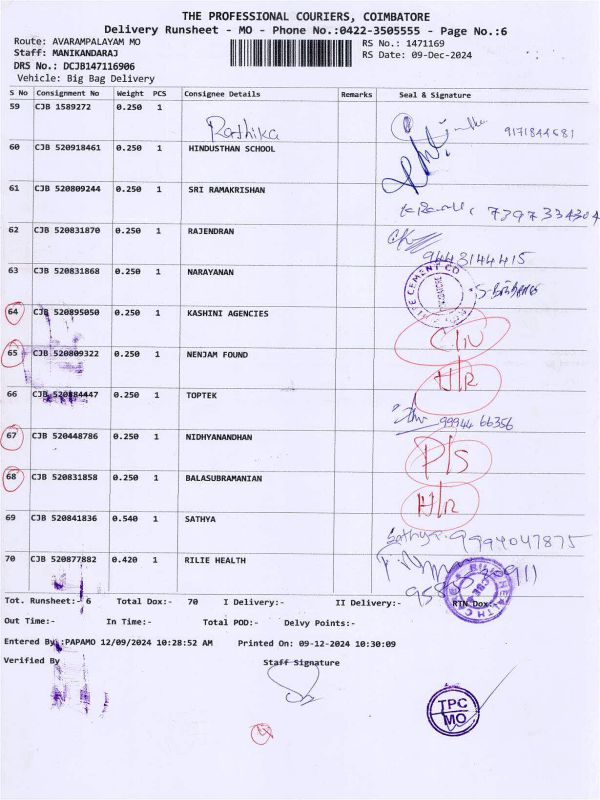 THE PROFESSIONAL COURIERS, COIMBATORE
Delivery Runsheet - MO - Phone No.:0422-3505555 - Page No.:6
Route: AVARAMPALAYAM MO RS No.: 1471169
Staff: MANIKANDARAJ RS Date: 09-Dec-2024
DRS No.: DCJB147116906
Vehicle: Big Bag Delivery
S No Consignment No Weight PCS Consignee Details Remarks Seal & Signature
59 CJB 1589272 0.250 1 Rathika 9171844681
60 CJB 520918461 0.250 1 HINDUSTHAN SCHOOL
61 CJB 520809244 0.250 1 SRI RAMAKRISHAN 7397334304
62 CJB 520831870 0.250 1 RAJENDRAN 9443144415
63 CJB 520831868 0.250 1 NARAYANAN
64 CJB 520895050 0.250 1 KASHINI AGENCIES
65 CJB 520809322 0.250 1 NENJAM FOUND H/R
66 CJB 520884447 0.250 1 TOPTEK 99944 66356
67 CJB 520448786 0.250 1 NIDHYANANDHAN P/S
68 CJB 520831858 0.250 1 BALASUBRAMANIAN H/R
69 CJB 520841836 0.540 1 SATHYA Sathya 9994047875
70 CJB 520877882 0.420 1 RILIE HEALTH
Tot. Runsheet:- 6 Total Dox:- 70 I Delivery:- II Delivery:- RTN Dox:
Out Time:- In Time:- Total POD:- Delvy Points:-
Entered By :PAPAMO 12/09/2024 10:28:52 AM Printed On: 09-12-2024 10:30:09
Verified By Staff Signature
TPC
MO
4